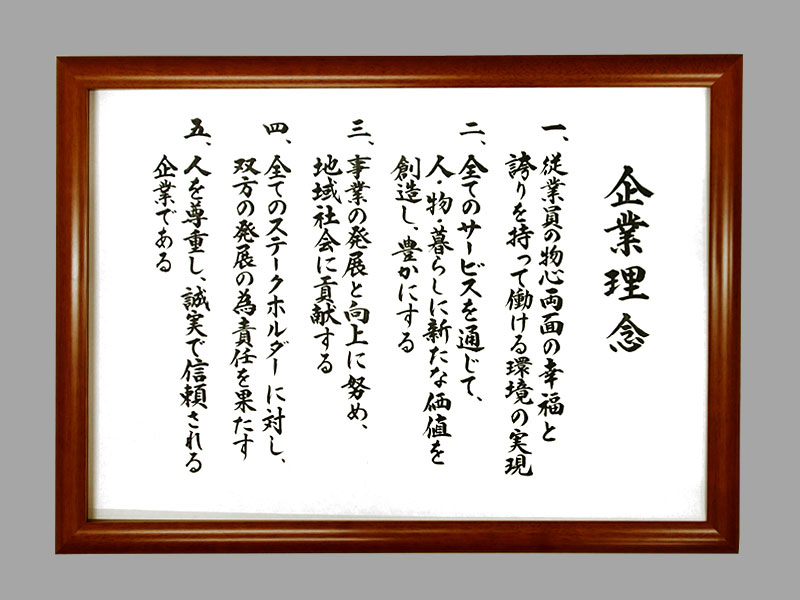 企業理念
一、従業員の物心両面の幸福と
誇りを持って働ける環境の実現
二、全てのサービスを通じて、
人・物・暮らしに新たな価値を
創造し、豊かにする
三、事業の発展と向上に努め、
地域社会に貢献する
四、全てのステークホルダーに対し、
双方の発展の為責任を果たす
五、人を尊重し、誠実で信頼される
企業である